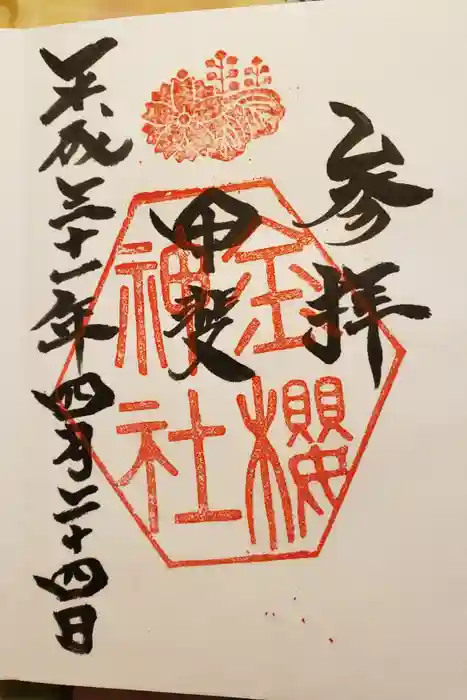 参拝
甲斐
金櫻
神社
平成三十一年四月二十四日